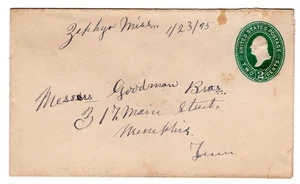 Zephyr Miss 1/23/95
UNITED STATES POSTAGE
TWO 2 CENTS
Messers Goodman Bros.
317 Main Street.
Memphis.
Tenn